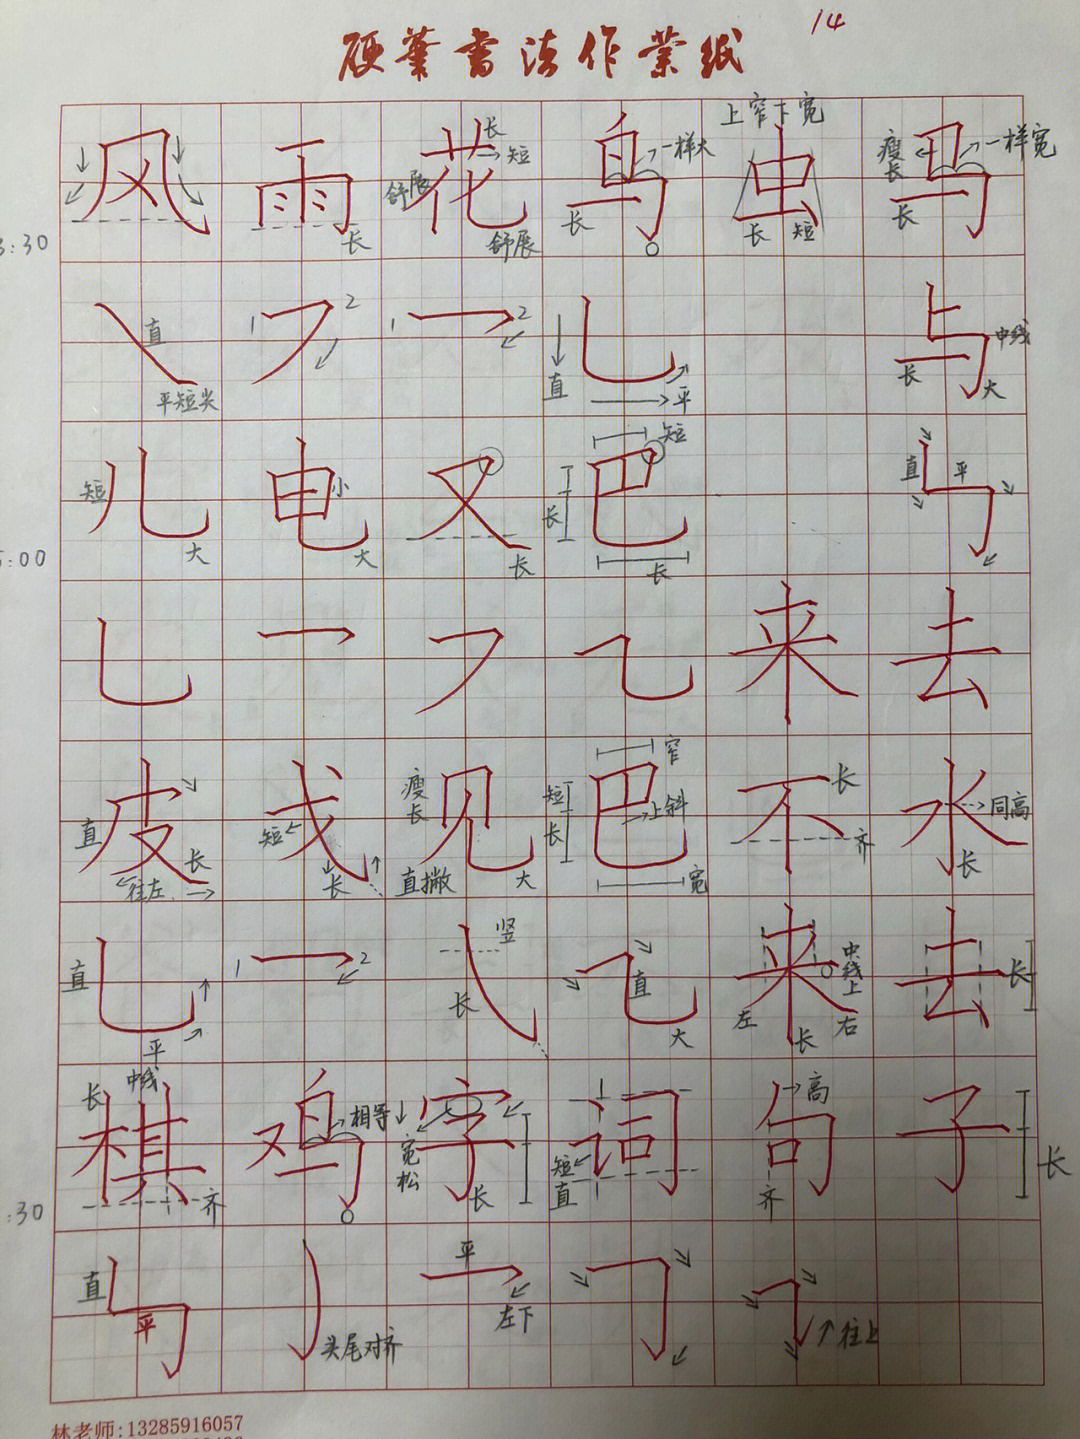 14
硬筆書法作業紙
风 雨 花 鸟 虫 马
长 短 舒展 舒展 一样大 长 上窄下宽 长 短 瘦长 一样宽 长
长
3:30
㇏ フ 乛 乚 与
直 平短尖 1 2 1 2 直 平 中线 长 大
儿 电 又 巴 ㄣ
短 大 小 大 长 短 长 长 直 平
5:00
乚 乛 フ ⺄ 来 去
皮 戈 见 巴 不 水
直 长 往左 短 长 瘦长 直撇 大 窄 短 长 上斜 宽 长 齐 同高 长
乚 乛 ㇂ ⺄ 来 去
直 平 1 2 竖 长 直 大 中线上 左 长 右 长
棋 鸡 字 词 句 子
长 中线 齐 相等 宽松 长 短 直 高 齐 长
:30
ㄣ 丿 乛 ㇆ ㇊
直 平 头尾对齐 平 左下 往上
林老师:13285916057